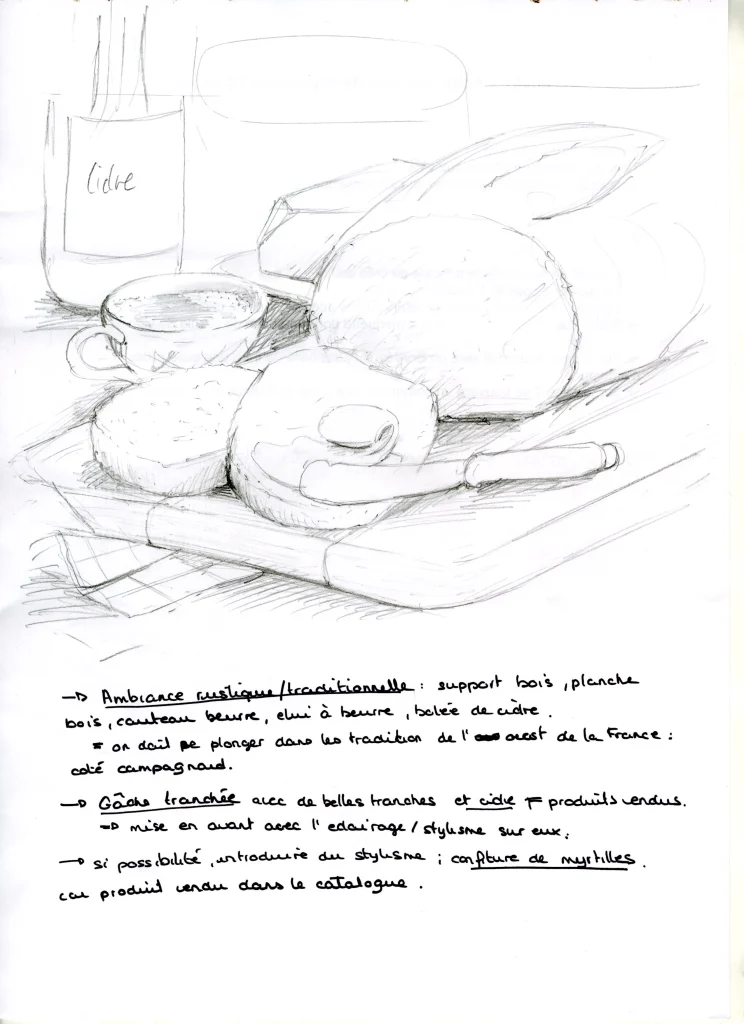 Cidre
→ Ambiance rustique/traditionnelle : support bois, planche
bois, couteau beurre, etui à beurre, bolée de cidre.
= on doit se plonger dans les tradition de l' ouest de la France :
coté campagnard.
→ Gâche tranchée avec de belles tranches et cidre = produits vendus.
→ mise en avant avec l'eclairage/stylisme sur eux.
→ si possibilité, introduire du stylisme ; confiture de myrtilles.
car produit vendu dans le catalogue.